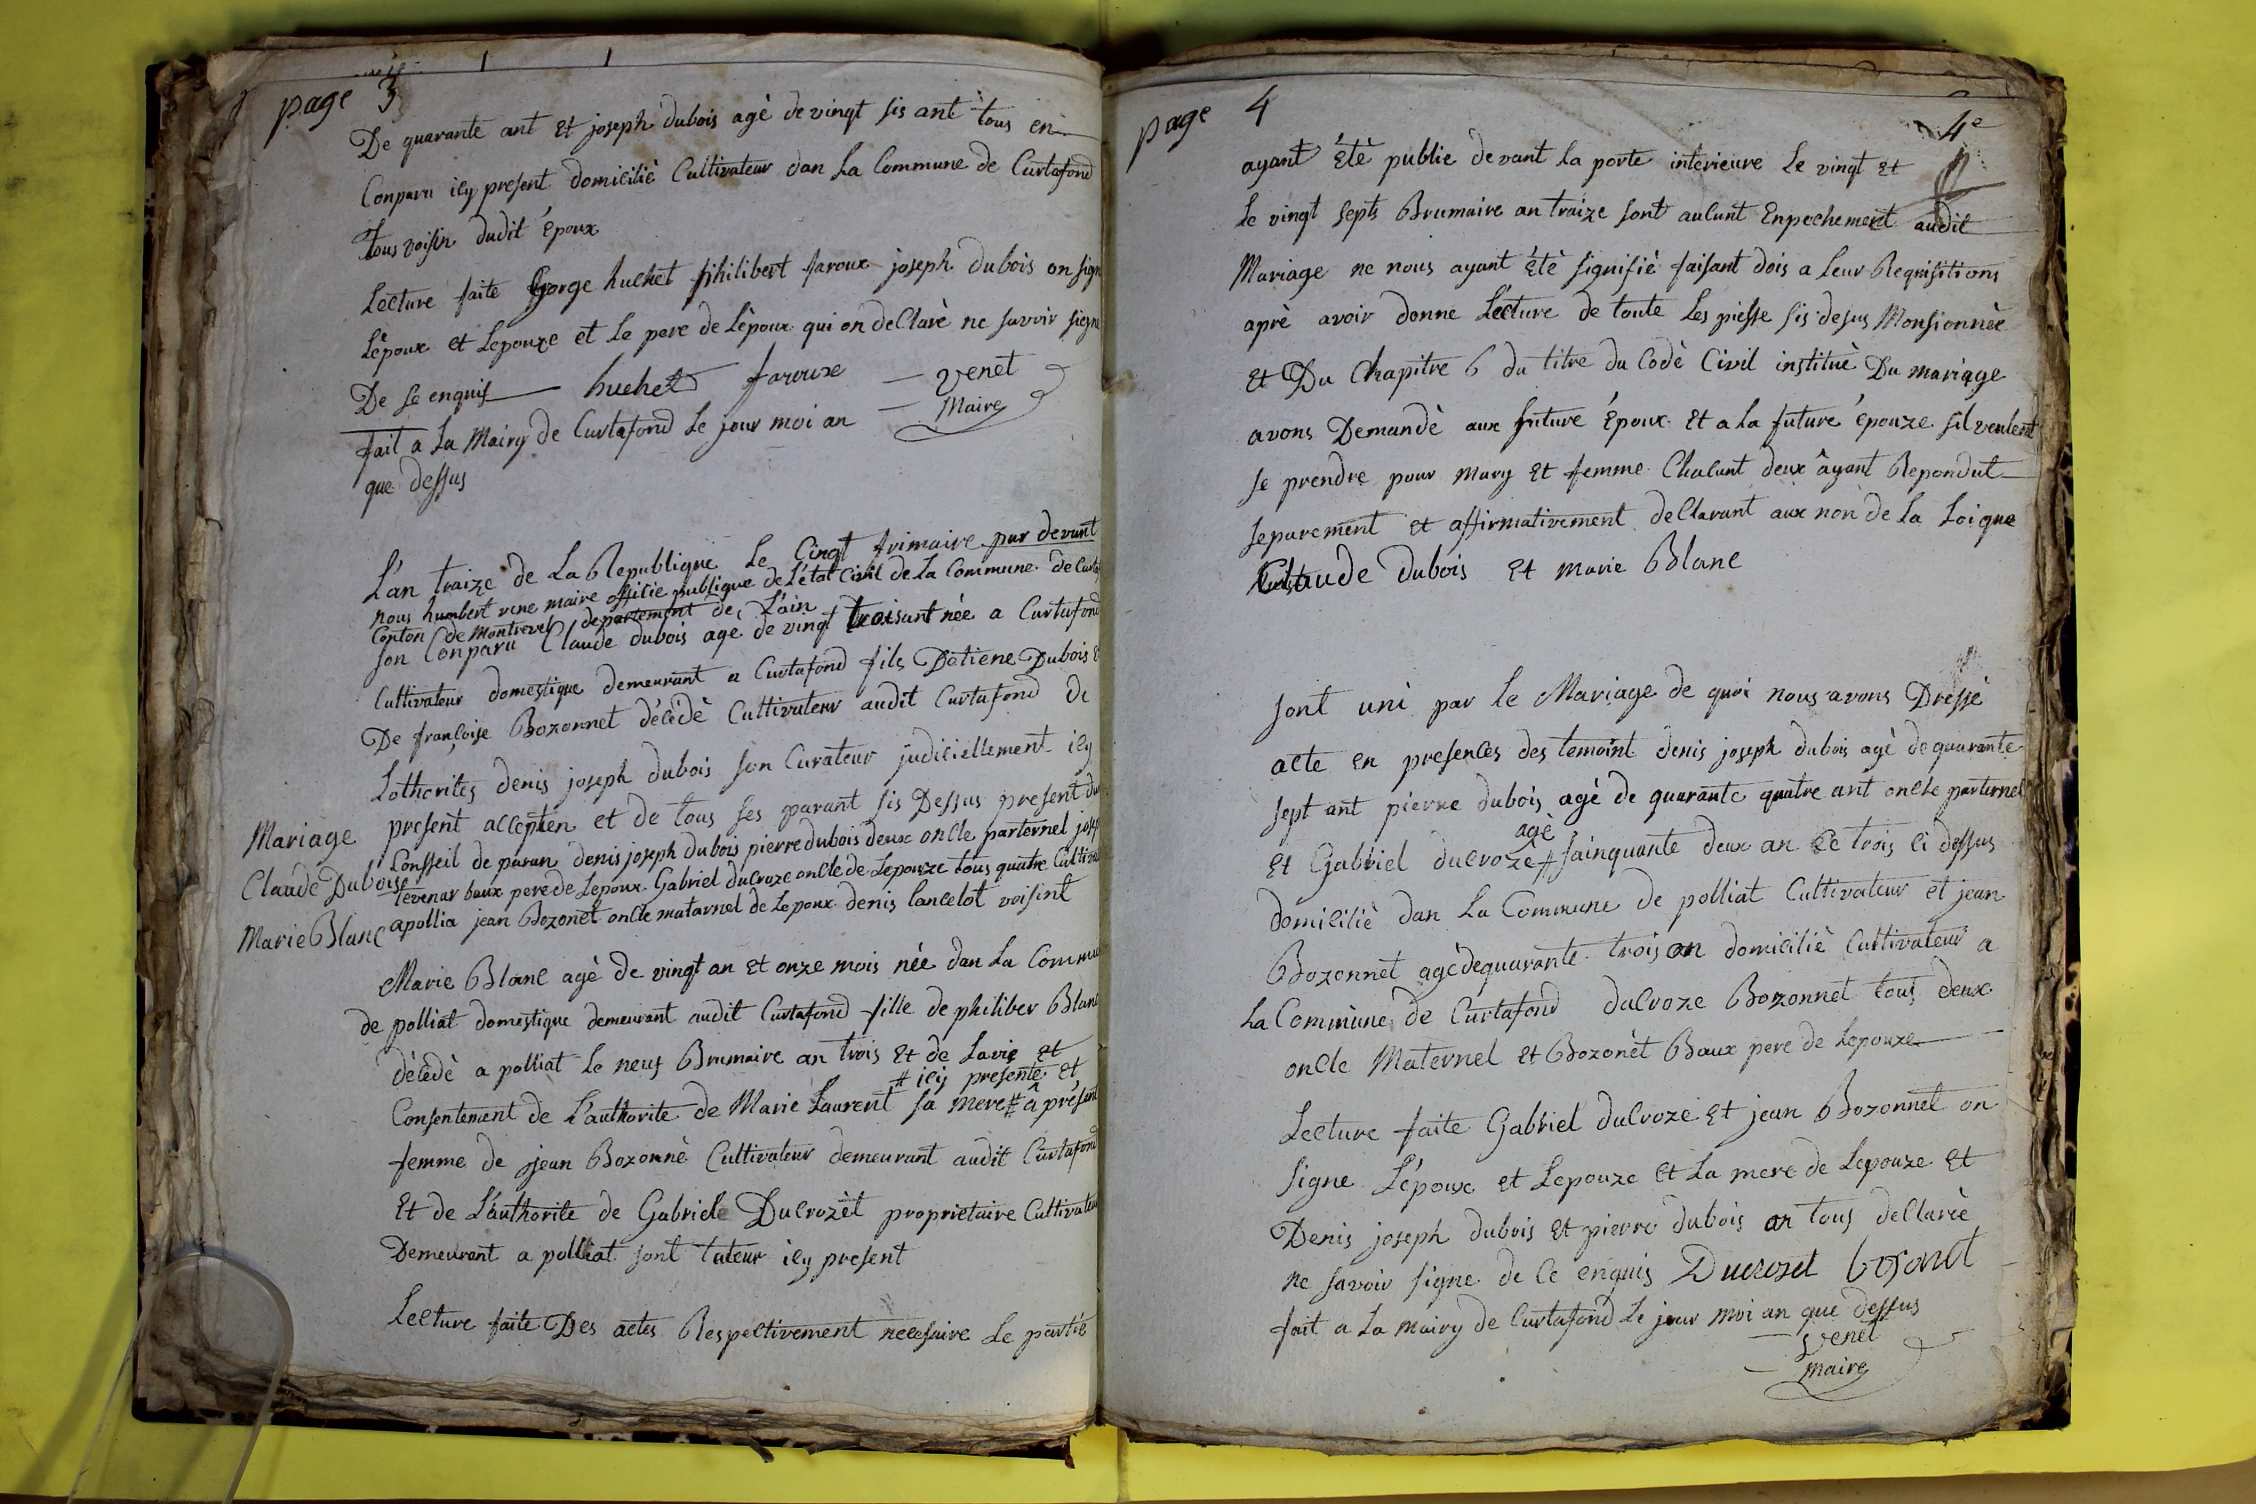 page 3
De quarante ant Et joseph dubois agè de vingt sis ant tous en
Conparu icy present domiciliè Cultivateur dan La Commune de Curtafond
tous voisin dudit Époux
Lecture faite Gorge huchet philibert faroux joseph dubois on signe
Lèpoux et Lepouze et Le pere de Lèpoux qui on declarè ne savoir signe
De se enquis huchet faroux venet
Maire
fait a La Mairy de Curtafond Le jour moi an
que dessus
L'an traize de La Republique Le Cinqt frimaire par devant
nous humbert vene maire officie publique de L'état Civil de La Commune de Curtaf
Conton de Montrevel departement de L'ain
son Conparu Claude dubois agè de vingt troisant née a Curtafond
Cultivateur domestique demeurant a Curtafond fils Détiene Dubois E
De francoise Bozonnet décèdè Cultivateur audit Curtafond de
Lothorites denis joseph dubois son Curateur judiciellement icy
present accepten et de tous ses parant sis Dessus present du
Mariage
Claude Duboise
Marie Blanc
Consseil de paran denis joseph dubois pierre dubois deux oncle parternel josep
tevenar baux pere de Lepoux Gabriel ducroze oncle de Lepouze tous quatre Cultiva
apollia jean Bozonet oncle matarnel de Lepoux denis lancelot voisint
Marie Blanc agè de vingt an et onze mois née dan La Commu
de polliat domestique demeurant audit Curtafond fille de philiber Blanc
dècèdè a polliat Le neuf Brumaire an trois Et de Lavis et
# icy presente et
Consentement de L'authorite de Marie Laurent sa mere # â présent
femme de jean Bozonnè Cultivateur demeurant audit Curtafond
Et de L'authorite de Gabriele Ducrozèt proprietaire Cultivateu
Demeurant a polliat sont tuteur icy present
Lecture faite Des actes Respectivement necesaire Le partie
page 4
4e
ayant Étè publie devant La porte interieure Le vingt Et
Le vingt septs Brumaire an traize sont aucunt Enpechement audit
Mariage ne nous ayant étè signifiè faisant dois a Leur Requisitions
aprè avoir donne Lecture de toute Les piesse sis desus Monsionnèe
et Du Chapitre 6 du titre du Codè Civil instituè Du mariage
avons Demandè aux future Époux Et a La future épouze sil veulent
se prendre pour mary Et femme Chacunt deux âyant Repondut
separement et affirmativement declarant aux non de La Loi que
Claude dubois Et marie Blanc
sont uni par Le Mariage de quoi nous avons Dressè
acte en presences des temoint denis joseph dubois agè de quarante
sept ant pierre dubois agè de quarante quatre ant oncle parternel
agè
Et Gabriel ducroze # sainquante deux an Ce trois Ci dessus
domiciliè dan La Commune de polliat Cultivateur et jean
Bozonnet agè de quarante trois an domiciliè Cultivateur a
La Commune de Curtafond ducroze Bozonnet tous deux
oncle Maternel et Bozonèt Baux pere de Lepouze
Lecture faite Gabriel ducroze Et jean Bozonnet on
signe L'époux et Lepouze et La mere de Lepouze Et
Denis joseph dubois et pierre dubois an tous declarèe
ne savoir signe de Ce enquis Ducrozet bosonet
fait a La mairy de Curtafond Le jour moi an que dessus
venet
maire